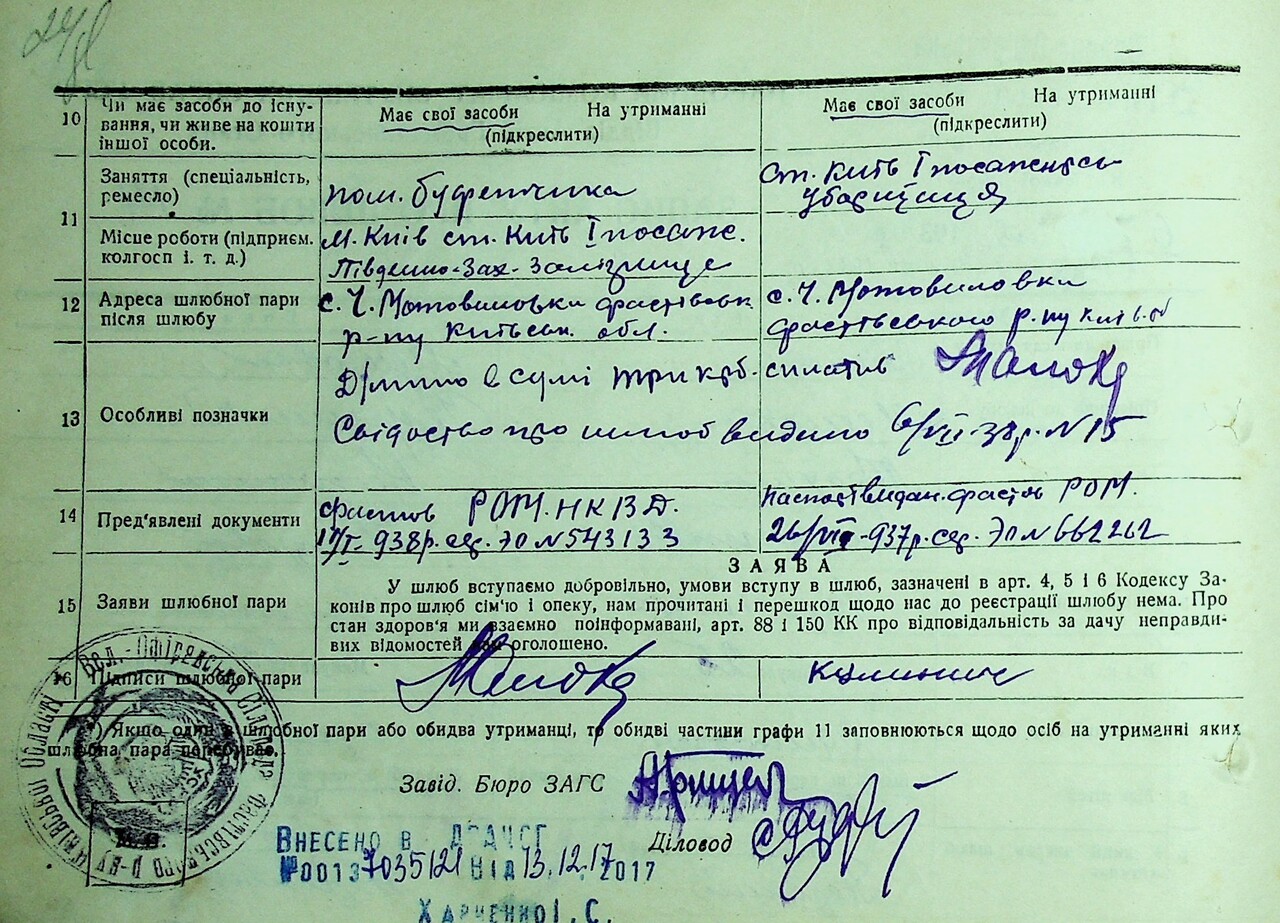 10 Чи має засоби до існу-
вання, чи живе на кошти
іншої особи.
Має свої засоби На утриманні
(підкреслити)
Має свої засоби На утриманні
(підкреслити)
11 Заняття (спеціальність,
ремесло)
пом. буфетчика
ст. Київ І посаж
убориця
Місце роботи (підприєм.
колгосп і. т. д.)
м. Київ ст. Київ І посаж.
Південно-Зах. Залізниці
12 Адреса шлюбної пари
після шлюбу
с. Ч. Мотовиловка фастівськ
р-ну Київськ. обл.
с. Ч. Мотовиловки
фастівського р-ну Київ об
13 Особливі позначки
в сумі три крб. сплатив
Свідоство про шлюб видано 6/VII-38р. № 15
14 Пред'явлені документи
Фастов РОМ. НКВД.
938р. сер. ЭО № 543133
паспорт видан. фастів РОМ.
26/VII-937р. сер. ЭО № 662262
ЗАЯВА
15 Заяви шлюбної пари
У шлюб вступаємо добровільно, умови вступу в шлюб, зазначені в арт. 4, 5 і 6 Кодексу За-
конів про шлюб сім'ю і опеку, нам прочитані і перешкод щодо нас до реєстрації шлюбу нема. Про
стан здоров'я ми взаємно поінформавані, арт. 88 і 150 КК про відповідальність за дачу неправди-
вих відомостей нам оголошено.
16 Підписи шлюбної пари
) Якщо один з шлюбної пари або обидва утриманці, то обидві частини графи 11 заповнюються щодо осіб на утриманні яких
шлюбна пара перебуває.
Завід. Бюро ЗАГС
Діловод
Внесено в ДРАЦСГ
№00137035121 від 13.12.17 2017
Харченко І. С.
М. П.
Фастівського р-ну Київської Області